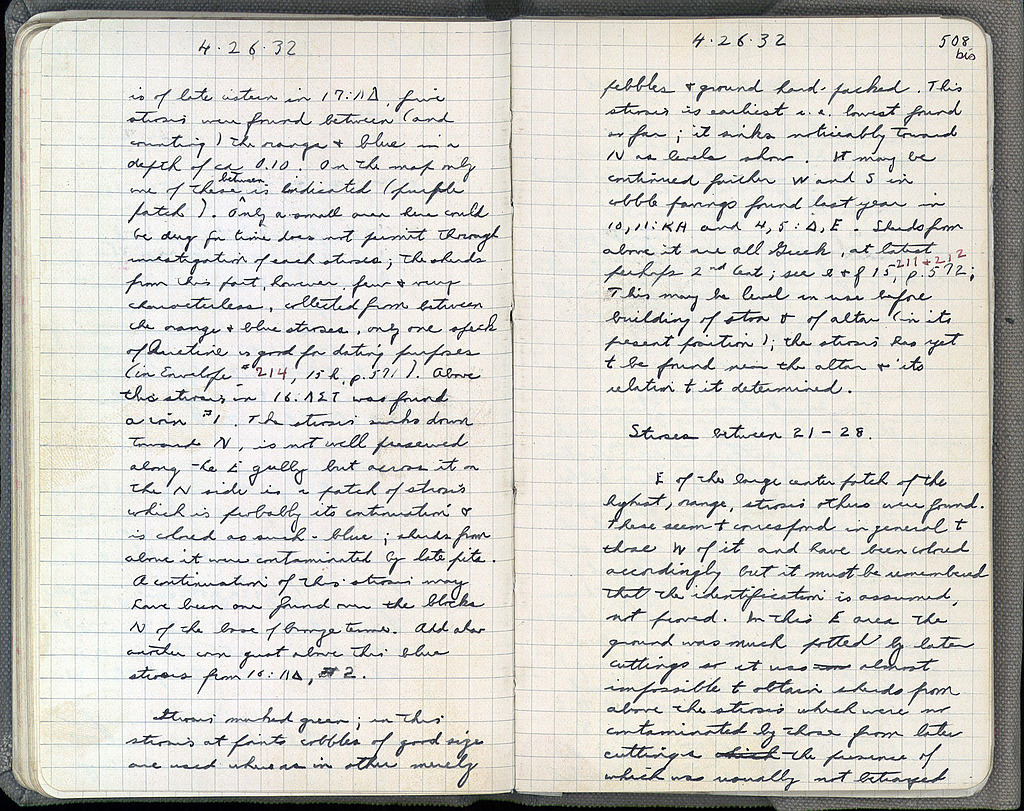 4·26·32
is of late cistern in 17:ΛΔ, five
stroses were found between (and
counting) the orange & blue in a
depth of ca. 0.10. On the map only
one of these between is indicated (purple
patch). Only a small area here could
be dug for time does not permit thorough
investigation of each stroses; the sherds
from this part, however, few & very
characterless, collected from between
the orange & blue stroses, only one speck
of Arretine is good for dating purposes
(in Envelope #214, 15 h, p. 571). Above
this strosis in 16: was found
a coin #1. The strosis sinks down
toward N, is not well preserved
along the E gully but across it on
the N side is a patch of strosis
which is probably its continuation &
is colored as such - blue; sherds from
above it were contaminated by late pits.
A continuation of this strosis may
have been one found over the blocks
N of the base of bronze. Add also
another coin just above this blue
strosis from 16:ΛΔ, #2.
Strosis marked green; in this
strosis at points cobbles of good size
are used whereas in other merely
4·26·32
508
bis
pebbles & ground hard-packed. This
strosis is earliest i.e. lowest found
so far; it sinks noticeably toward
N as levels show. It may be
continued further W and S in
cobble pavings found last year in
10, 11:ΚΛ and 4, 5:Δ, Ε. Sherds from
above it are all Greek, at latest
perhaps 2nd Cent; see e & f 15, 211 & 212 p. 572;
This may be level in use before
building of stoa & of altar (in its
present position); the strosis has yet
to be found near the altar & its
relation to it determined.
Stroses between 21-28.
E of the large center patch of the
highest, orange, strosis others were found.
These seem to correspond in general to
those W of it and have been colored
accordingly but it must be remembered
that the identification is assumed,
not proved. In this E area the
ground was much potted by later
cuttings so it was almost
impossible to obtain sherds from
above the strosis which were not
contaminated by those from later
cuttings which the presence of
which was usually not betrayed